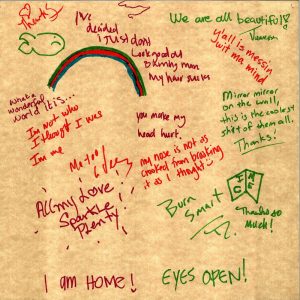 Thanks!
I've
decided
I JUST don't
look good
Dlinky man
my hair sucks
We are all beautiful!
y'all is messin
wit ma mind
what a
wonderful
world it is...
I'm not who
I thought I was
I'm me
Mirror mirror
on the wall,
this is the coolest
shit of them all.
Thanks!
you make my
head hurt.
Me too!
my nose is not as
crooked from breaking
it as I thought
All my Love
Sparkle
Plenty
Burn
Smart
ICE
Thanks so
Much!
I am HOME!
EYES OPEN!